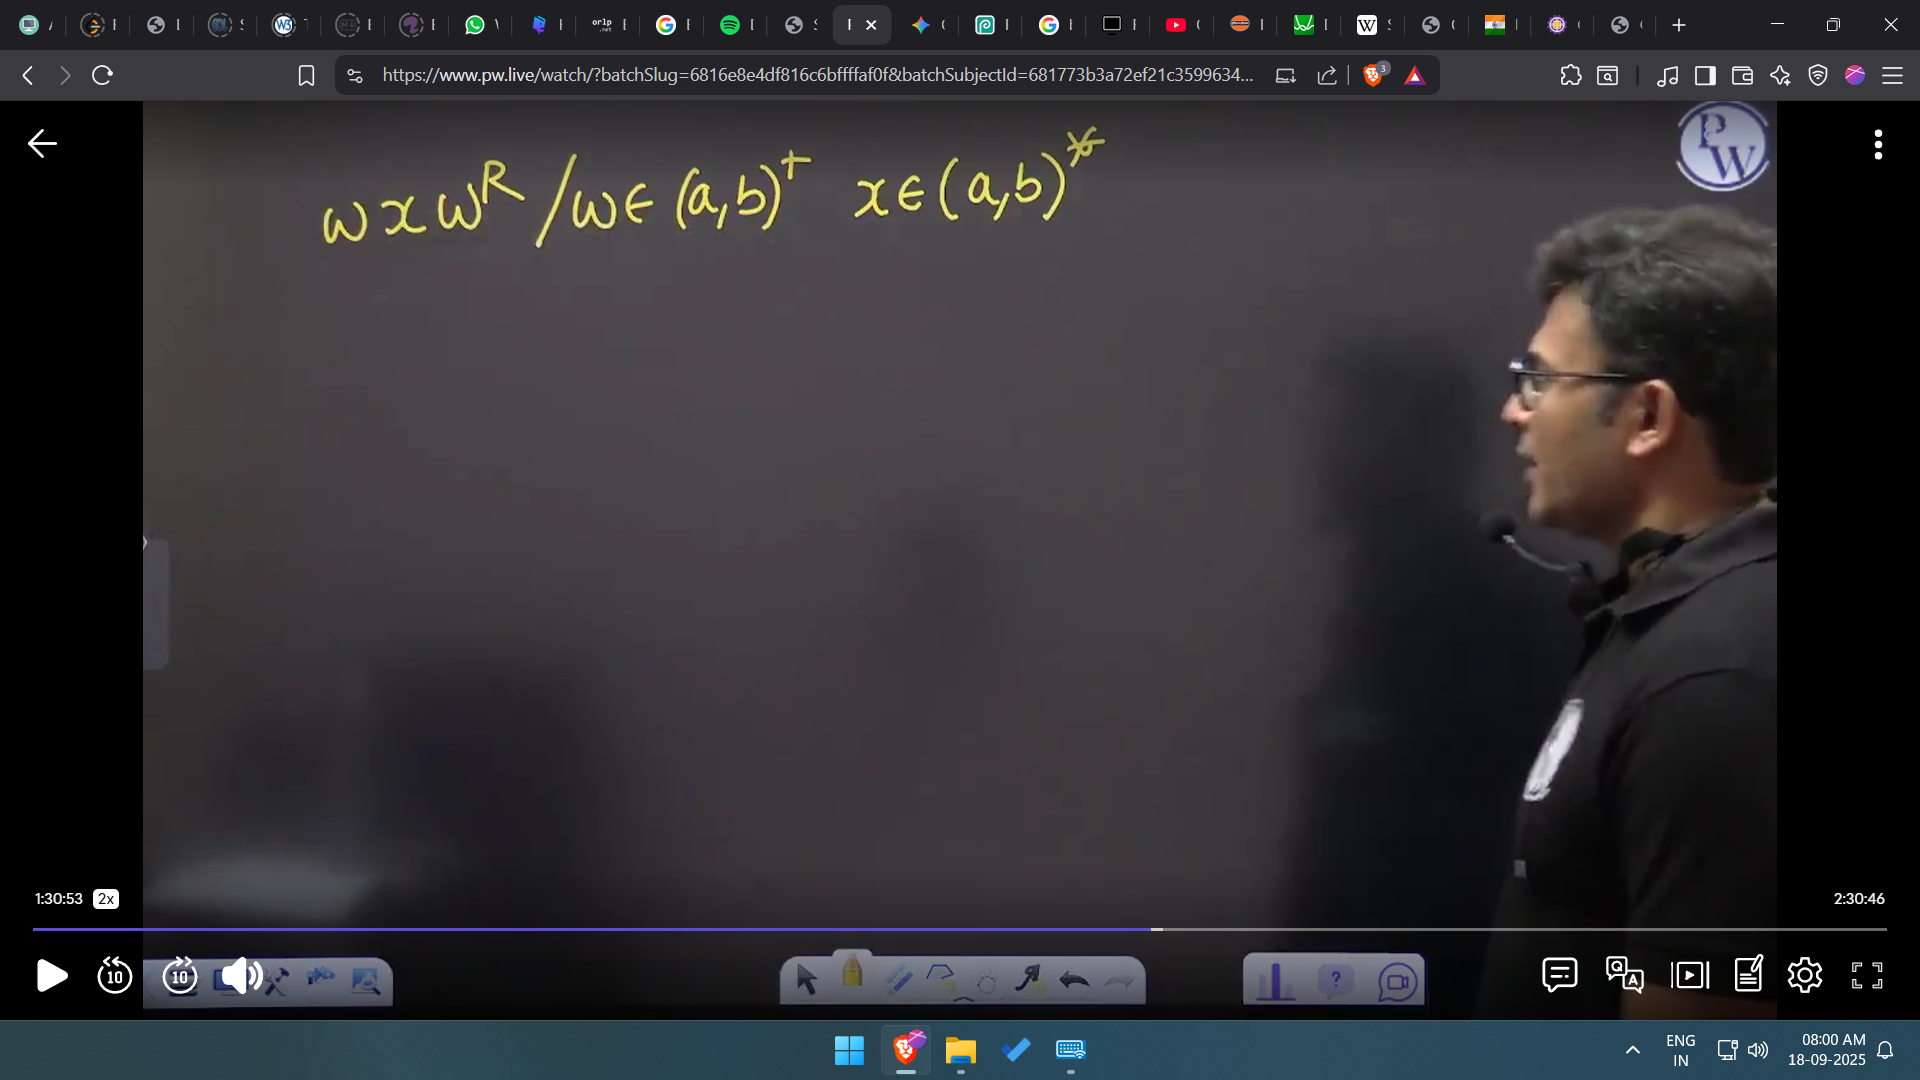 https://www.pw.live/watch/?batchSlug=6816e8e4df816c6bffffaf0f&batchSubjectId=681773b3a72ef21c3599634...
3
PW
wxw^R / w∈ (a,b)^+ x∈(a,b)^*
1:30:53 2x
2:30:46
10 10
ENG
IN
08:00 AM
18-09-2025